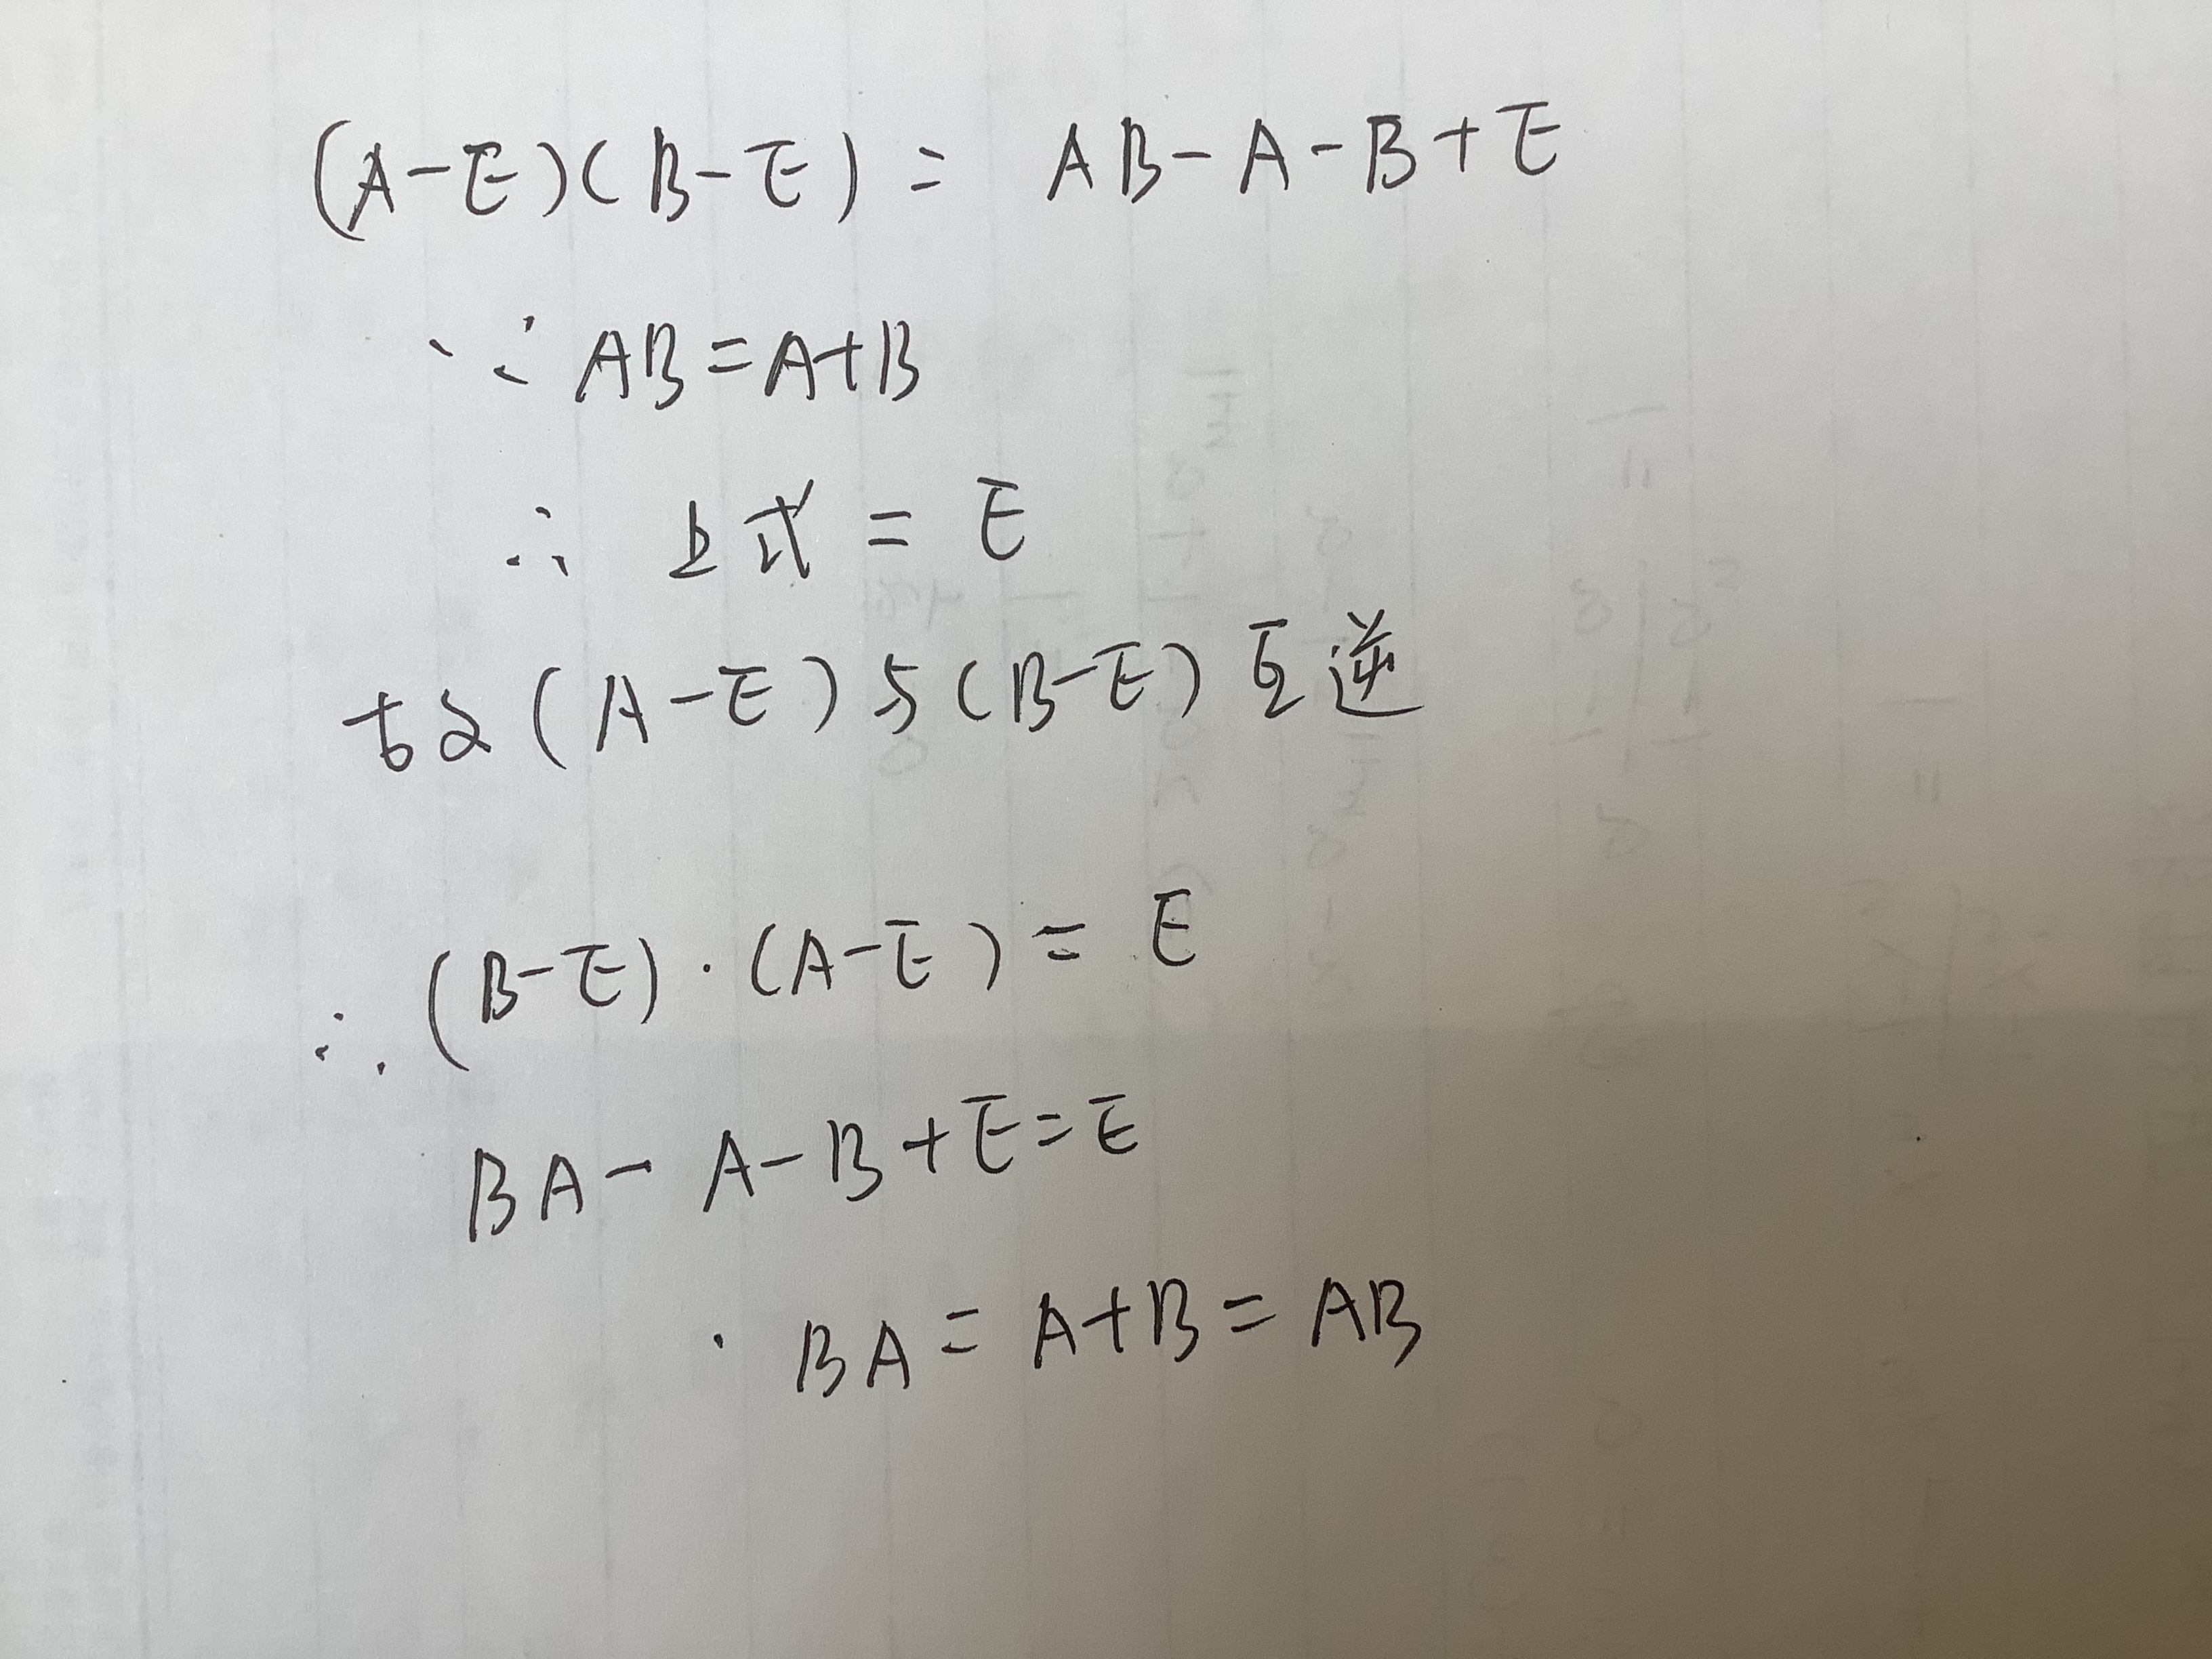 (A-E)(B-E) = AB-A-B+E
∵ AB=A+B
∴ 上式 = E
故(A-E)与(B-E)互逆
∴ (B-E)·(A-E) = E
BA-A-B+E=E
· BA = A+B = AB